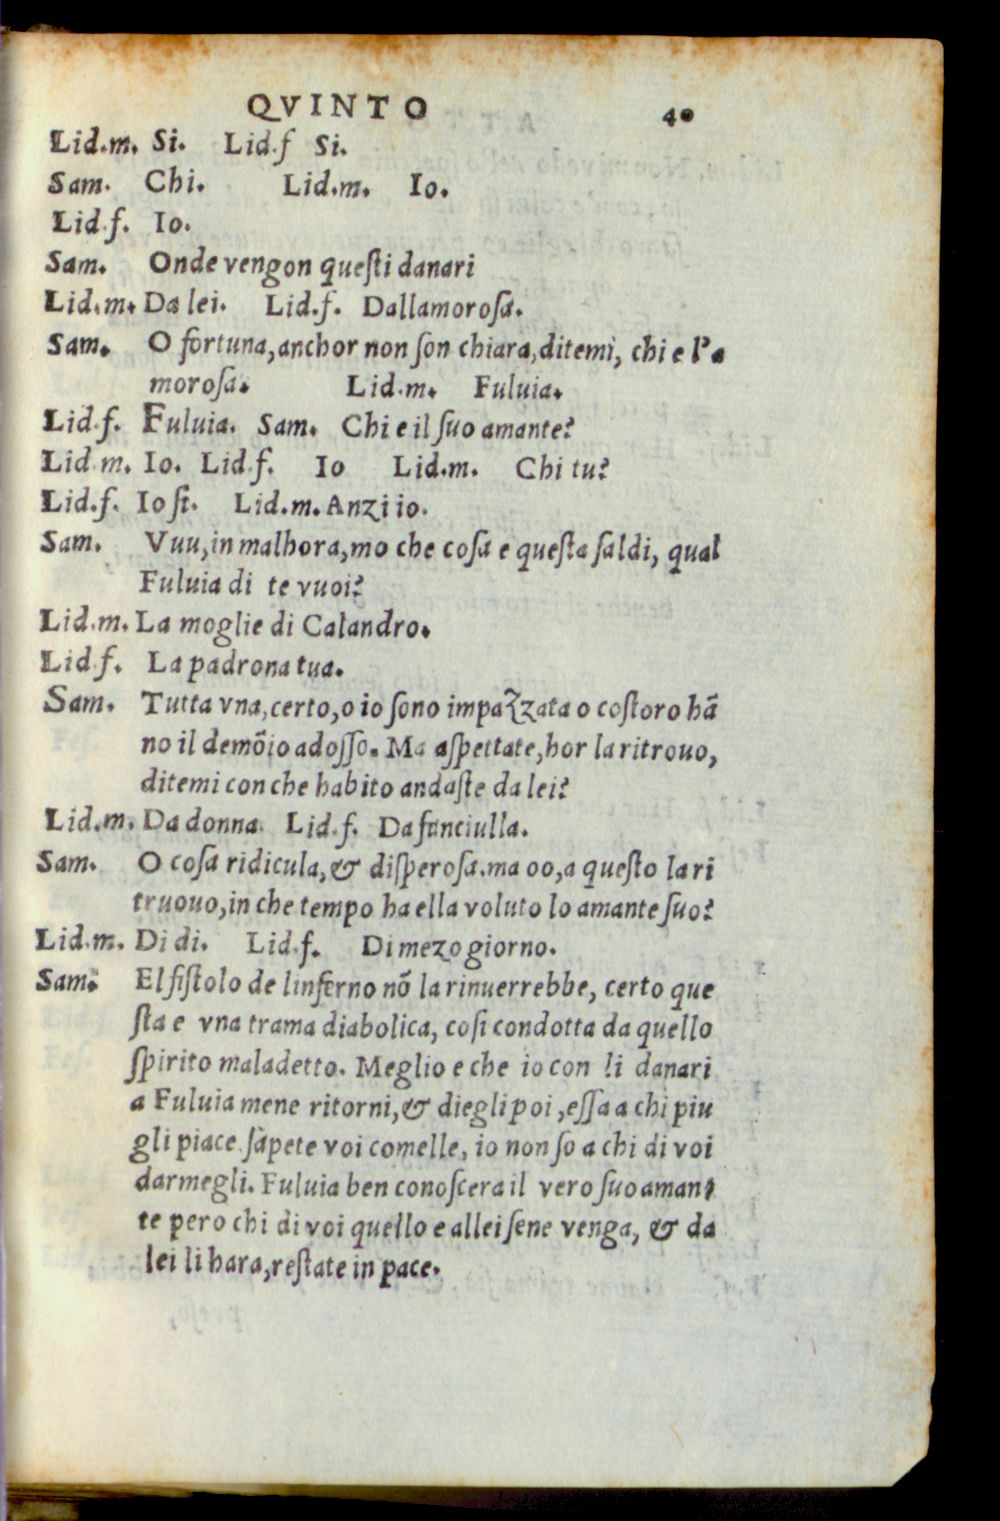 QVINTO 40
Lid.m. Si. Lid.f Si.
Sam. Chi. Lid.m. Io.
Lid.f. Io.
Sam. Onde vengon queſti danari
Lid.m. Da lei. Lid.f. Dallamoroſa.
Sam. O fortuna, anchor non ſon chiara, ditemi, chi e l'a
moroſa. Lid.m. Fuluia.
Lid.f. Fuluia. Sam. Chi e il ſuo amante?
Lid.m. Io. Lid.f. Io Lid.m. Chi tu?
Lid.f. Io ſi. Lid.m. Anzi io.
Sam. Vuu, in malhora, mo che coſa e queſta ſaldi, qual
Fuluia di te vuoi?
Lid.m. La moglie di Calandro.
Lid.f. La padrona tua.
Sam. Tutta vna, certo, o io ſono impazzata o coſtoro hã
no il demõio adoſſo. Ma aſpettate, hor la ritrouo,
ditemi con che habito andaſte da lei?
Lid.m. Da donna. Lid.f. Da fanciulla.
Sam. O coſa ridicula, & diſperoſa. ma oo, a queſto la ri
truouo, in che tempo ha ella voluto lo amante ſuo?
Lid.m. Di di. Lid.f. Di mezo giorno.
Sam. El fiſtolo de linferno nõ la rinuerrebbe, certo que
ſta e vna trama diabolica, coſi condotta da quello
ſpirito maladetto. Meglio e che io con li danari
a Fuluia mene ritorni, & diegli poi, eſſa a chi piu
gli piace. ſapete voi comelle, io non ſo a chi di voi
darmegli. Fuluia ben conoſcera il vero ſuo aman
te pero chi di voi quello e allei ſene venga, & da
lei li hara, reſtate in pace.